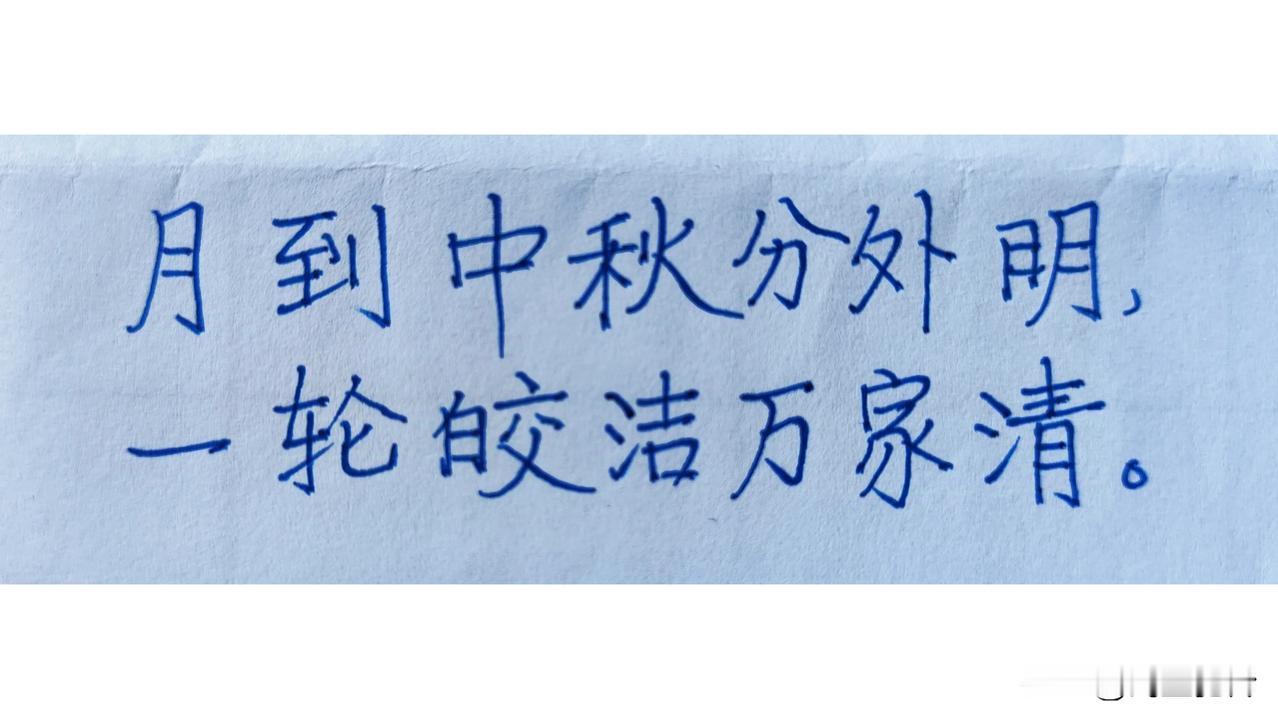 月到中秋分外明,
一轮皎洁万家清。